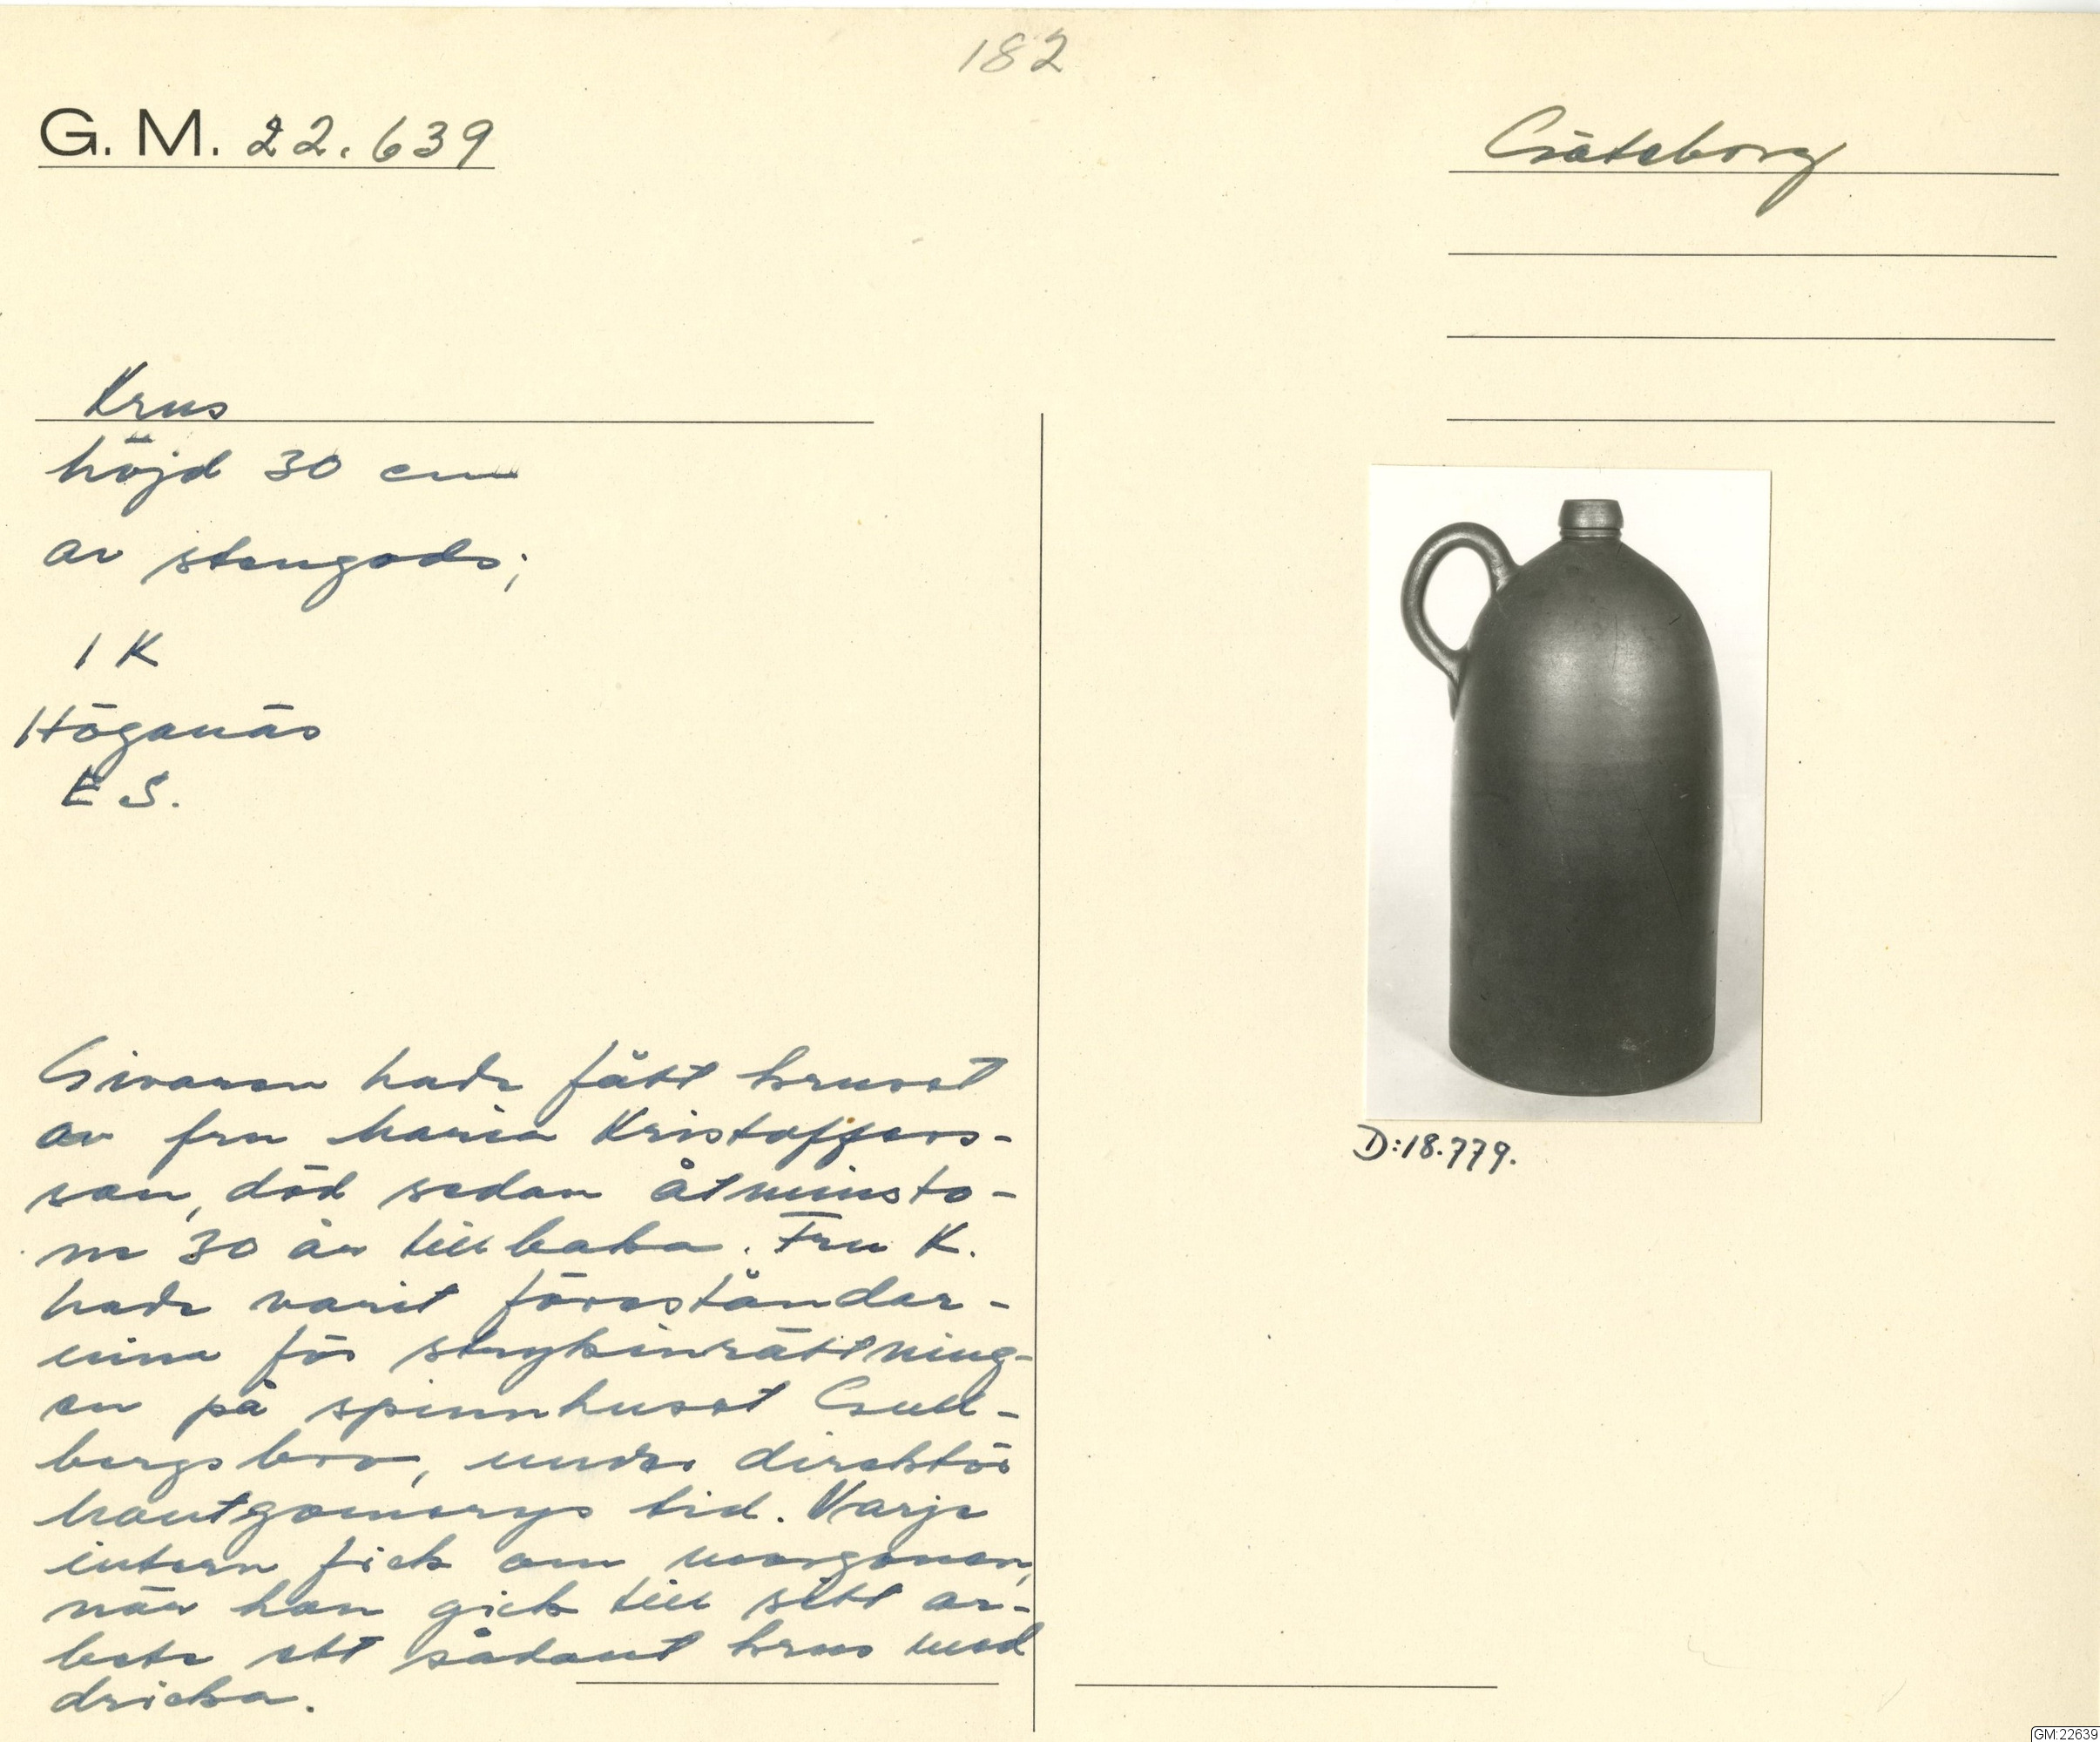 182
G. M. 22.639
Göteborg
Krus
höjd 30 cm
av stengods;
1 K
Höganäs
E S.
Givaren hade fått kruset
av fru Maria Kristoffers-
son, död sedan åtminsto-
ne 30 år tillbaka. Fru K.
hade varit föreståndar-
inna för strykinrättning-
en på spinnhuset Gull-
bergsbro, under direktör
Montgomerys tid. Varje
intern fick om morgonen,
när han gick till sitt ar-
bete ett sådant krus med
dricka.
D:18.779.
GM:22639